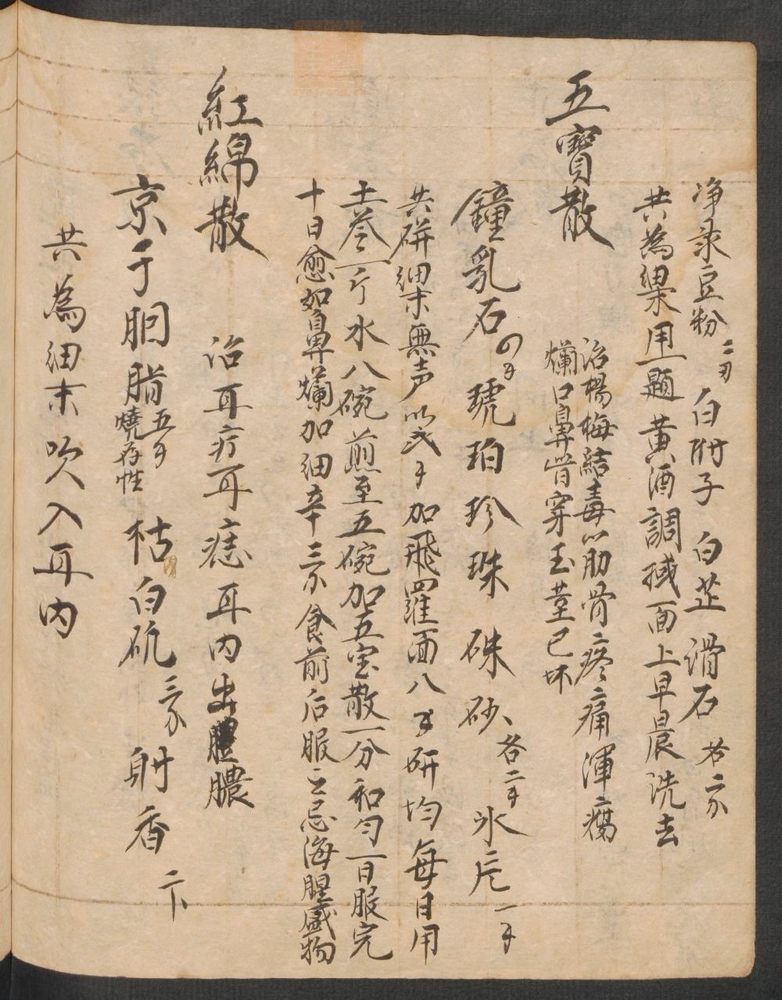 净彔豆粉二刃 白附子 白芷 滑石 各二分
共為細末用一題黃酒調搽面上早晨洗去
五寶散
治楊梅結毒以筋骨疼痛渾瘍
爛口鼻皆穿玉莖已坏
鐘乳石 琥珀 珍珠 硃砂 各二 氷片 一
共研細末無声 加飛羅面八 研均每日用
土苓一斤水八碗煎至五碗加五宝散一分和勻一日服完
十日愈如鼻爛加细辛三分食前后服之忌海腥盛物
紅綿散
治耳疔耳痣耳内出膿
京子胭脂 五 燒存性 枯白矾 三分 射香 二下
共為细末吹入耳内